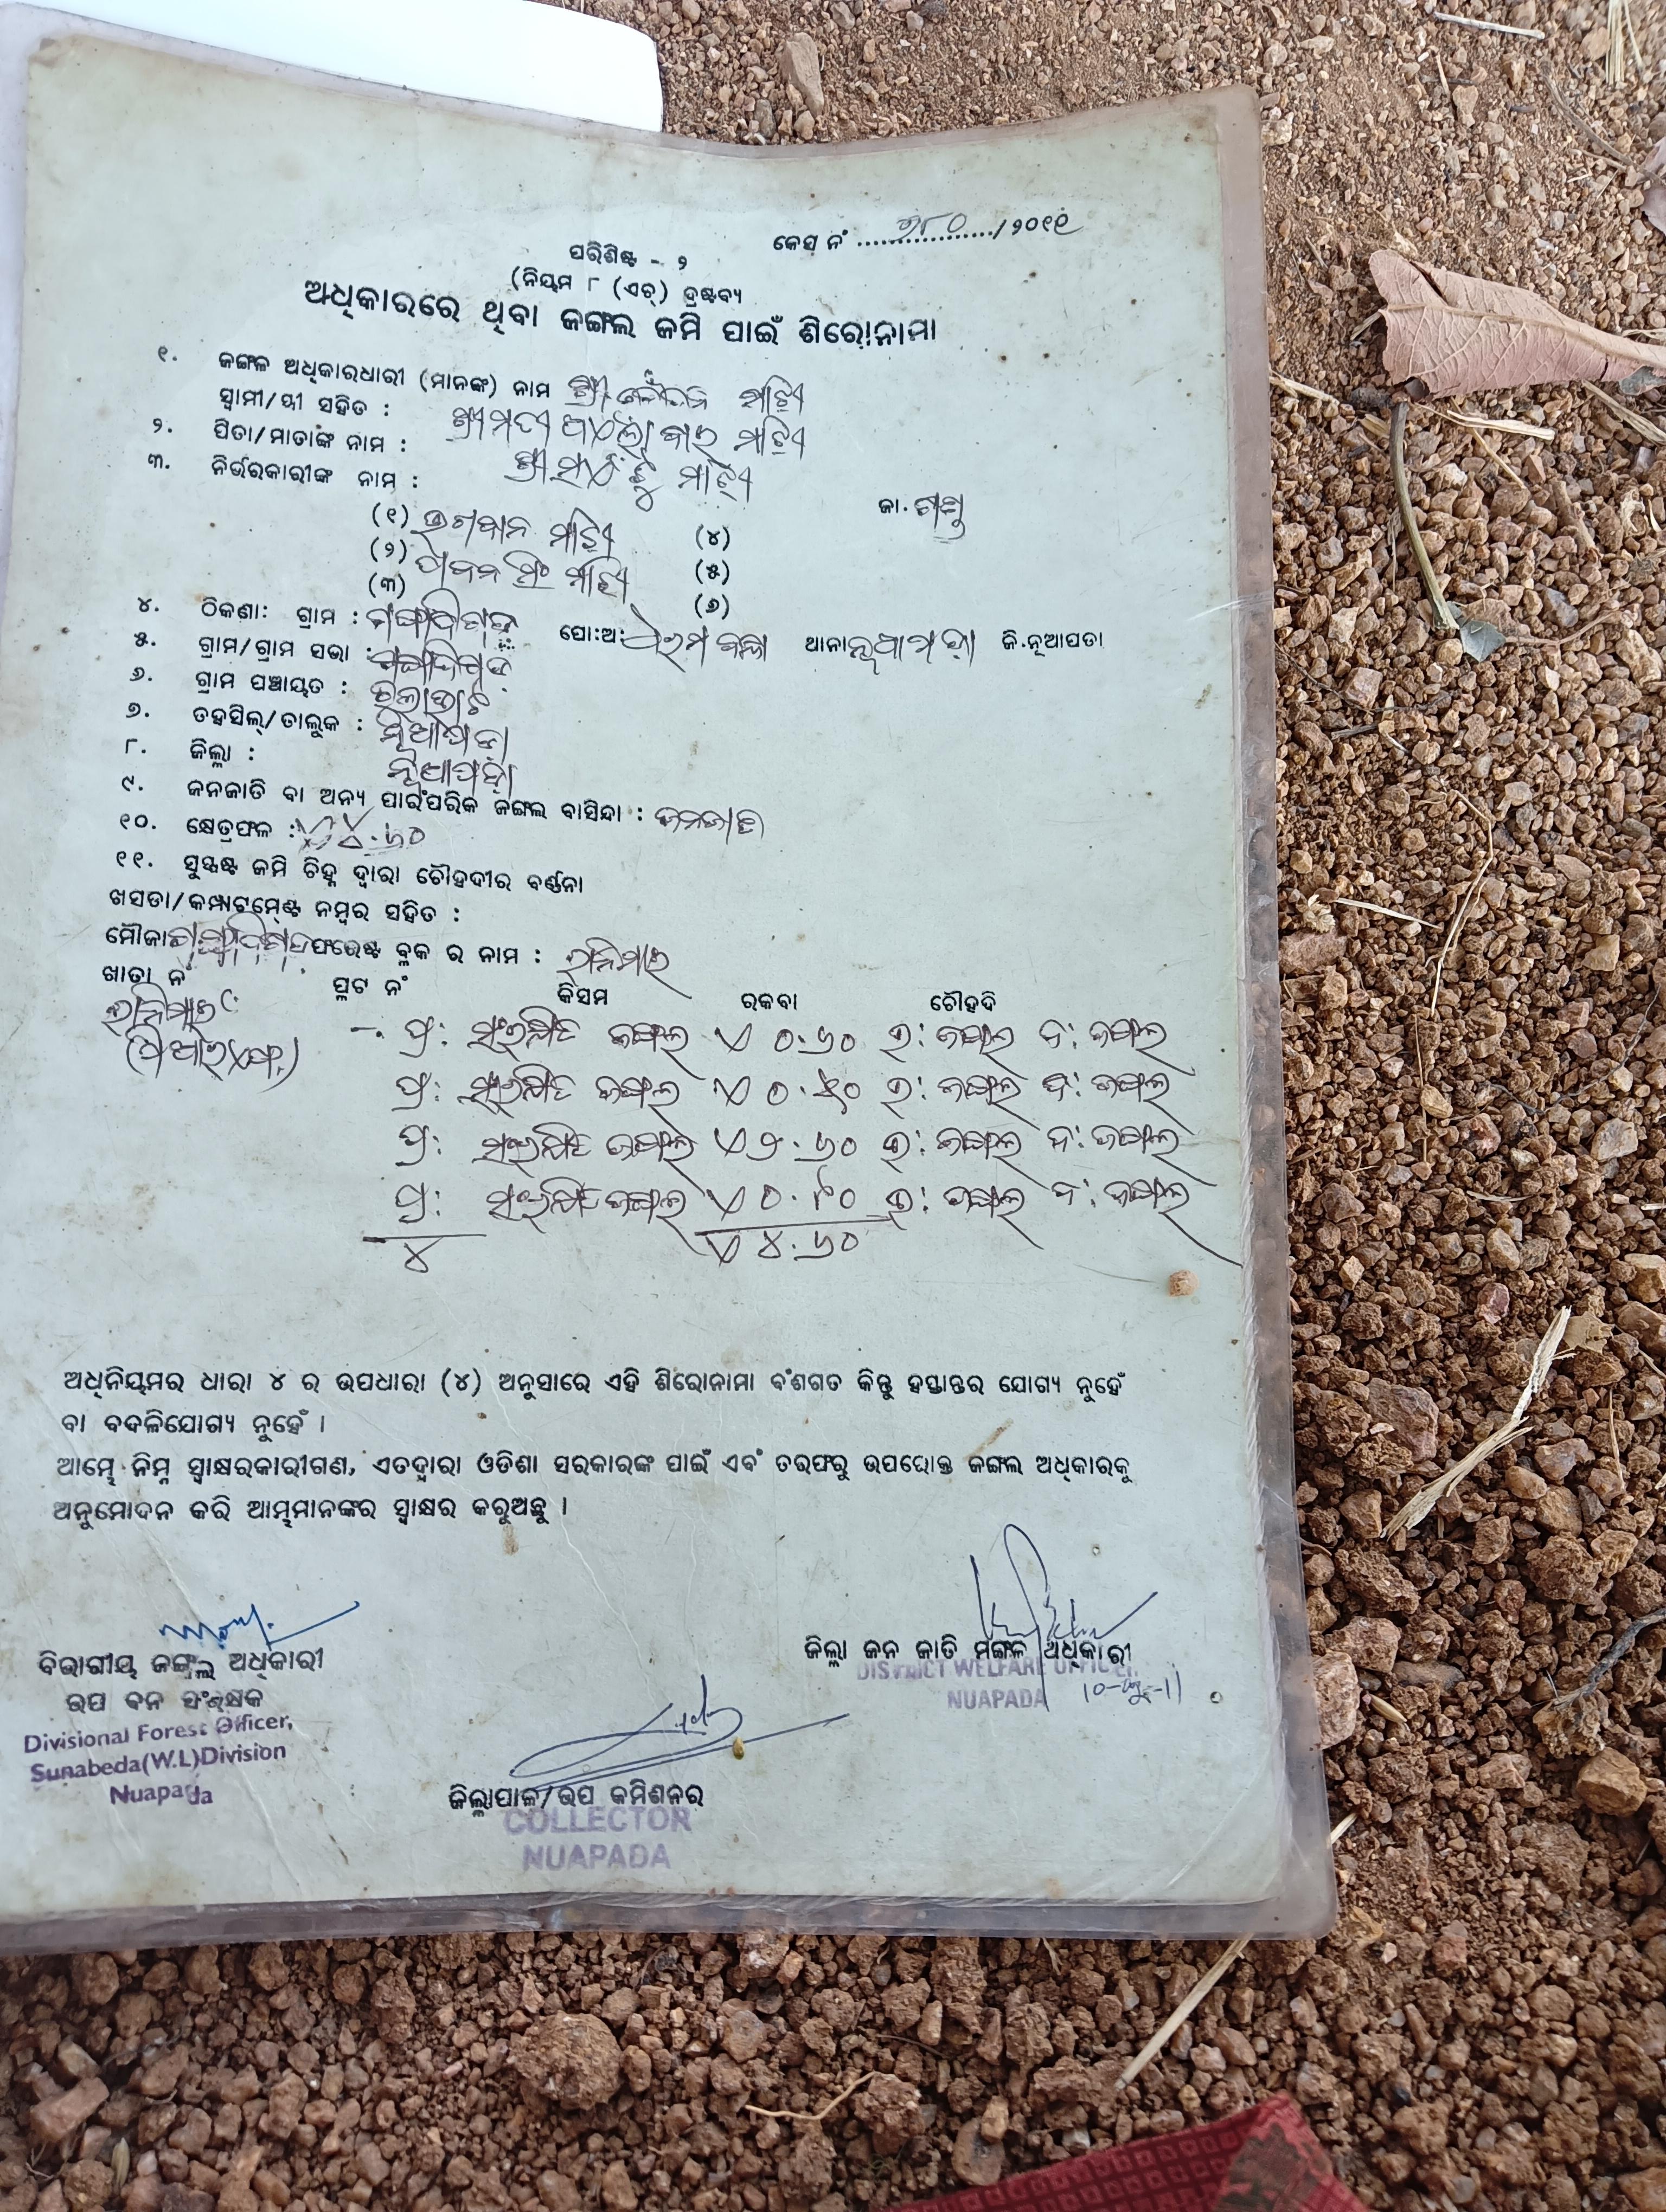 କେସ ନଂ ................../୨୦୧୧
ପରିଶିଷ୍ଟ - ୨
(ନିୟମ ୮ (ଏଚ୍) ଦ୍ରଷ୍ଟବ୍ୟ
ଅଧିକାରରେ ଥିବା ଜଙ୍ଗଲ ଜମି ପାଇଁ ଶିରୋନାମା
୧. ଜଙ୍ଗଳ ଅଧିକାରଧାରୀ (ମାନଙ୍କ) ନାମ ଶ୍ରୀ ମାଝୀ
ସ୍ୱାମୀ/ସ୍ତ୍ରୀ ସହିତ : ଶ୍ରୀମତୀ ମାଝୀ
୨. ପିତା/ମାତାଙ୍କ ନାମ : ଶ୍ରୀ ମାଝୀ
୩. ନିର୍ଭରକାରୀଙ୍କ ନାମ : ଜା.
(୧) ଭଗବାନ ମାଝୀ (୪)
(୨) ମାଝୀ (୫)
(୩) (୬)
୪. ଠିକଣା: ଗ୍ରାମ : ପୋ:ଅ: ଥାନା ନୂଆପଡ଼ା ଜି.ନୂଆପଡା
୫. ଗ୍ରାମ/ଗ୍ରାମ ସଭା :
୬. ଗ୍ରାମ ପଞ୍ଚାୟତ :
୭. ତହସିଲ୍/ତାଲୁକ : ନୂଆପଡ଼ା
୮. ଜିଲ୍ଲା : ନୂଆପଡ଼ା
୯. ଜନଜାତି ବା ଅନ୍ୟ ପାରଂପରିକ ଜଙ୍ଗଲ ବାସିନ୍ଦା : ଜନଜାତି
୧୦. କ୍ଷେତ୍ରଫଳ : ଏ ୪.୬୦
୧୧. ସୁସ୍ପଷ୍ଟ ଜମି ଚିହ୍ନ ଦ୍ୱାରା ଚୌହଦୀର ବର୍ଣ୍ଣନା
ଖସଡା/କମ୍ପାର୍ଟମେଣ୍ଟ ନମ୍ବର ସହିତ :
ମୌଜା ଫରେଷ୍ଟ ବ୍ଳକ ର ନାମ : ରାନିମାଇ
ଖାତା ନଂ ପ୍ଲଟ ନଂ କିସମ ରକବା ଚୌହଦି
ରାନିମାଇ
(ପି ଆର୍ ଏଫ୍)
ପ୍ର: ସଂରକ୍ଷିତ ଜଙ୍ଗଲ ଏ ୦.୬୦ ଉ: ଜଙ୍ଗଲ ଦ: ଜଙ୍ଗଲ
ପ୍ର: ସଂରକ୍ଷିତ ଜଙ୍ଗଲ ଏ ୦.୫୦ ଉ: ଜଙ୍ଗଲ ଦ: ଜଙ୍ଗଲ
ପ୍ର: ସଂରକ୍ଷିତ ଜଙ୍ଗଲ ଏ ୨.୬୦ ଉ: ଜଙ୍ଗଲ ଦ: ଜଙ୍ଗଲ
ପ୍ର: ସଂରକ୍ଷିତ ଜଙ୍ଗଲ ଏ ୦.୯୦ ଉ: ଜଙ୍ଗଲ ଦ: ଜଙ୍ଗଲ
୪ ଏ ୪.୬୦
ଅଧିନିୟମର ଧାରା ୪ ର ଉପଧାରା (୪) ଅନୁସାରେ ଏହି ଶିରୋନାମା ବଂଶଗତ କିନ୍ତୁ ହସ୍ତାନ୍ତର ଯୋଗ୍ୟ ନୁହେଁ
ବା ବଦଳିଯୋଗ୍ୟ ନୁହେଁ ।
ଆମ୍ଭେ ନିମ୍ନ ସ୍ୱାକ୍ଷରକାରୀଗଣ, ଏତଦ୍ୱାରା ଓଡିଶା ସରକାରଙ୍କ ପାଇଁ ଏବଂ ତରଫରୁ ଉପରୋକ୍ତ ଜଙ୍ଗଲ ଅଧିକାରକୁ
ଅନୁମୋଦନ କରି ଆମ୍ଭମାନଙ୍କର ସ୍ୱାକ୍ଷର କରୁଅଛୁ ।
ଜିଲ୍ଲା ଜନ ଜାତି ମଙ୍ଗଳ ଅଧିକାରୀ
DISTRICT WELFARE OFFICER,
NUAPADA
ବିଭାଗୀୟ ଜଙ୍ଗଲ ଅଧିକାରୀ
ଉପ ବନ ସଂରକ୍ଷକ
Divisional Forest Officer,
Sunabeda(W.L)Division
Nuapada
ଜିଲ୍ଲାପାଳ/ଉପ କମିଶନର
COLLECTOR
NUAPADA